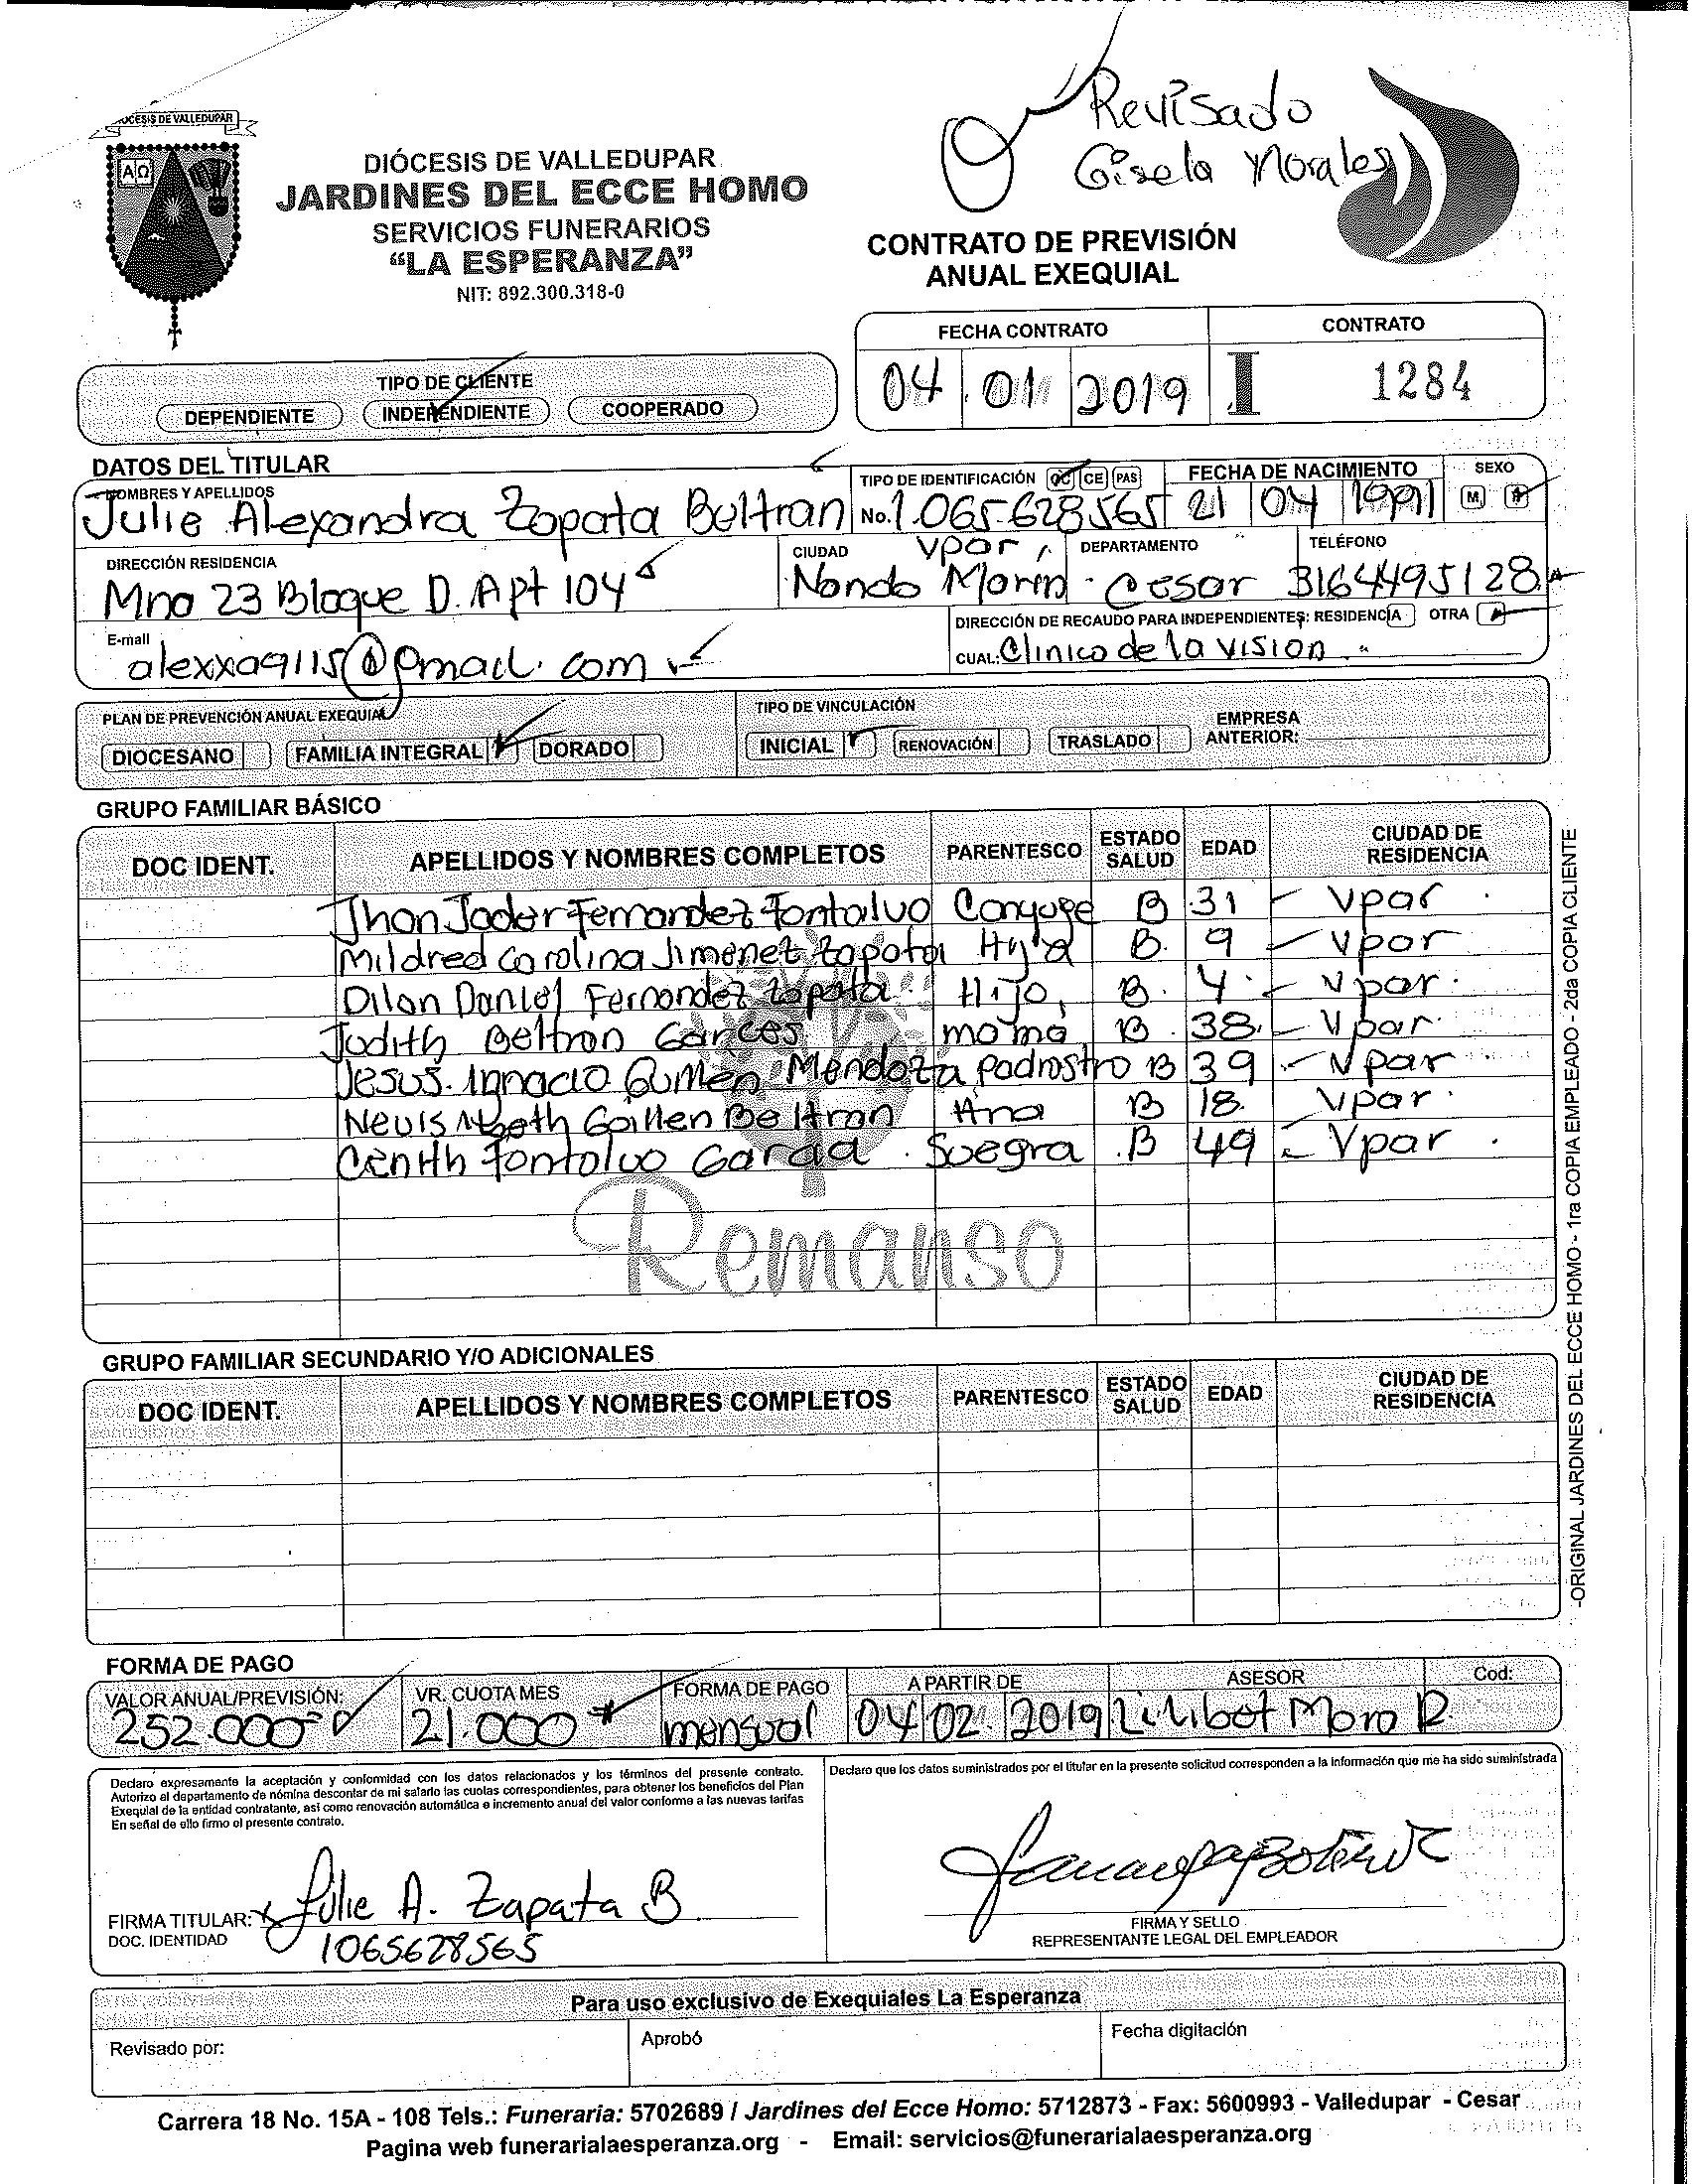 DIÓCESIS DE VALLEDUPAR
Revisado
Gisela Morales
ΑΩ
DIÓCESIS DE VALLEDUPAR
JARDINES DEL ECCE HOMO
SERVICIOS FUNERARIOS
“LA ESPERANZA”
NIT: 892.300.318-0
CONTRATO DE PREVISIÓN
ANUAL EXEQUIAL
FECHA CONTRATO CONTRATO
04 01 2019 I 1284
TIPO DE CLIENTE
DEPENDIENTE INDEPENDIENTE COOPERADO
DATOS DEL TITULAR
NOMBRES Y APELLIDOS TIPO DE IDENTIFICACIÓN CC CE PAS FECHA DE NACIMIENTO SEXO
Julie Alexandra Zapata Beltran No. 1.065.628.565 21 04 1991 M F
DIRECCIÓN RESIDENCIA CIUDAD Vpar DEPARTAMENTO TELÉFONO
Mna 23 Bloque D. Apt 104 Nando Marin Cesar 3164495128
E-mail DIRECCIÓN DE RECAUDO PARA INDEPENDIENTES: RESIDENCIA OTRA
alexxa9115@gmail.com CUAL: Clinica de la vision
PLAN DE PREVENCIÓN ANUAL EXEQUIAL TIPO DE VINCULACIÓN
DIOCESANO FAMILIA INTEGRAL DORADO INICIAL RENOVACIÓN TRASLADO EMPRESA ANTERIOR:
GRUPO FAMILIAR BÁSICO
DOC IDENT. APELLIDOS Y NOMBRES COMPLETOS PARENTESCO ESTADO SALUD EDAD CIUDAD DE RESIDENCIA
Jhon Jader Fernandez Fontalvo Conyuge B 31 Vpar
Mildred Carolina Jimenez Zapata Hija B. 9 Vpar
Dilan Daniel Fernandez Zapata Hijo B. 4 Vpar
Judith Beltran Garces mama B 38 Vpar
Jesus Ignacio Mendoza Padrastro B 39 Vpar
Nevis Guillen Beltran Hna B 18 Vpar
Cenith Fontalvo Garcia Suegra B 49 Vpar
Remanso
GRUPO FAMILIAR SECUNDARIO Y/O ADICIONALES
DOC IDENT. APELLIDOS Y NOMBRES COMPLETOS PARENTESCO ESTADO SALUD EDAD CIUDAD DE RESIDENCIA
-ORIGINAL JARDINES DEL ECCE HOMO - 1ra COPIA EMPLEADO - 2da COPIA CLIENTE
FORMA DE PAGO
VALOR ANUAL/PREVISIÓN: VR. CUOTA MES FORMA DE PAGO A PARTIR DE ASESOR Cod:
252.000 21.000 mensual 04 02 2019 Lilibet Mora R.
Declaro expresamente la aceptación y conformidad con los datos relacionados y los términos del presente contrato.
Autorizo al departamento de nómina descontar de mi salario las cuotas correspondientes, para obtener los beneficios del Plan
Exequial de la entidad contratante, así como renovación automática e incremento anual del valor conforme a las nuevas tarifas
En señal de ello firmo el presente contrato.
Declaro que los datos suministrados por el titular en la presente solicitud corresponden a la información que me ha sido suministrada
FIRMA TITULAR: Julie A. Zapata B
DOC. IDENTIDAD 1065628565
FIRMA Y SELLO
REPRESENTANTE LEGAL DEL EMPLEADOR
Para uso exclusivo de Exequiales La Esperanza
Revisado por: Aprobó Fecha digitación
Carrera 18 No. 15A - 108 Tels.: Funeraria: 5702689 / Jardines del Ecce Homo: 5712873 - Fax: 5600993 - Valledupar - Cesar
Pagina web funerarialaesperanza.org - Email: servicios@funerarialaesperanza.org